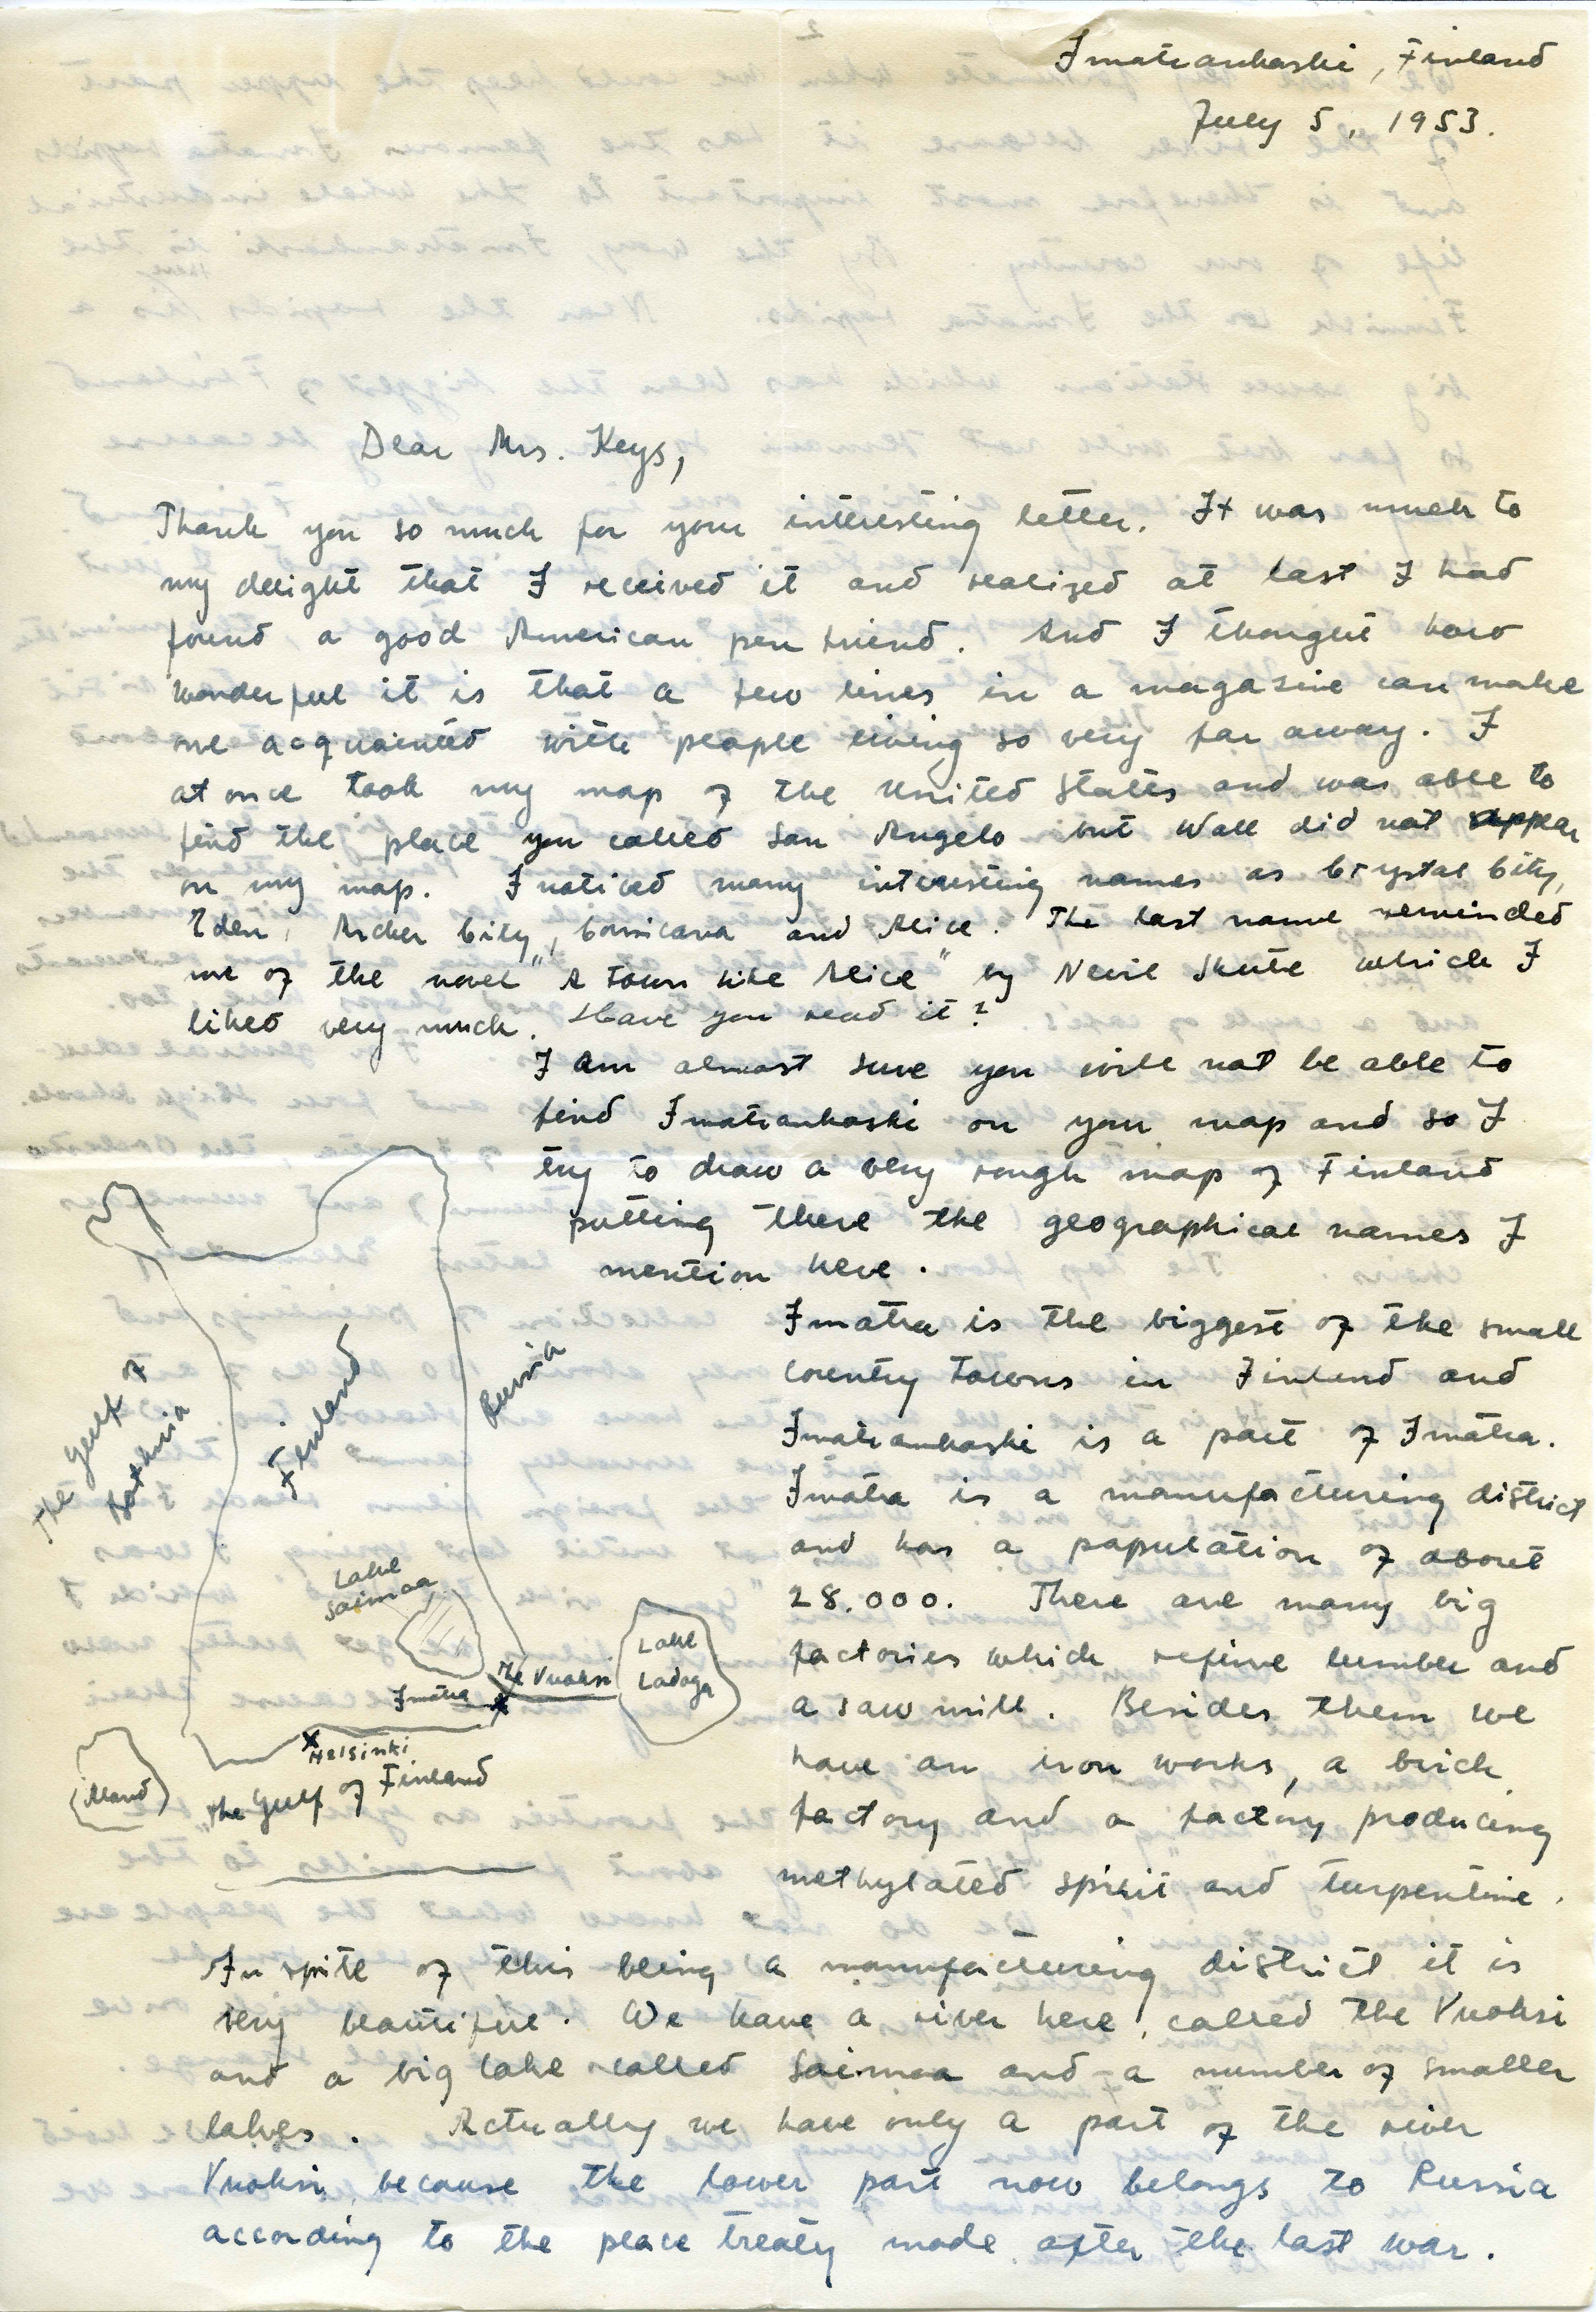 Imatrankoski, Finland
July 5, 1953.
Dear Mrs. Keys,
Thank you so much for your interesting letter. It was much to
my delight that I received it and realized at last I had
found a good American pen friend. And I thought how
wonderful it is that a few lines in a magazine can make
me acquainted with people living so very far away. I
at once took my map of the United States and was able to
find the place you called San Angelo but Wall did not appear
on my map. I noticed many interesting names as Crystal City,
Eden, Archer City, Corsicana and Alice. The last name reminded
me of the novel "A town like Alice" by Nevil Shute which I
liked very much. Have you read it?
I am almost sure you will not be able to
find Imatrankoski on you map and so I
try to draw a very rough map of Finland
putting there the geographical names I
mention here.
Imatra is the biggest of the small
country towns in Finland and
Imatrankoski is a part of Imatra.
Imatra is a manufacturing district
and has a population of about
28.000. There are many big
factories which refine lumber and
a saw mill. Besides them we
have an iron works, a brick
factory and a factory producing
methylated spirit and turpentine.
The Gulf of
Bothnia
Finland
Russia
Lake
Saimaa
The Vuoksi
Lake
Ladoga
Imatra
Helsinki
Åland
The Gulf of Finland
In spite of this being a manufacturing district it is
very beautiful. We have a river here, called the Vuoksi
and a big lake called Saimaa and a number of smaller
lakes. Actually we have only a part of the river
Vuoksi, because the lower part now belongs to Russia
according to the peace treaty made after the last war.